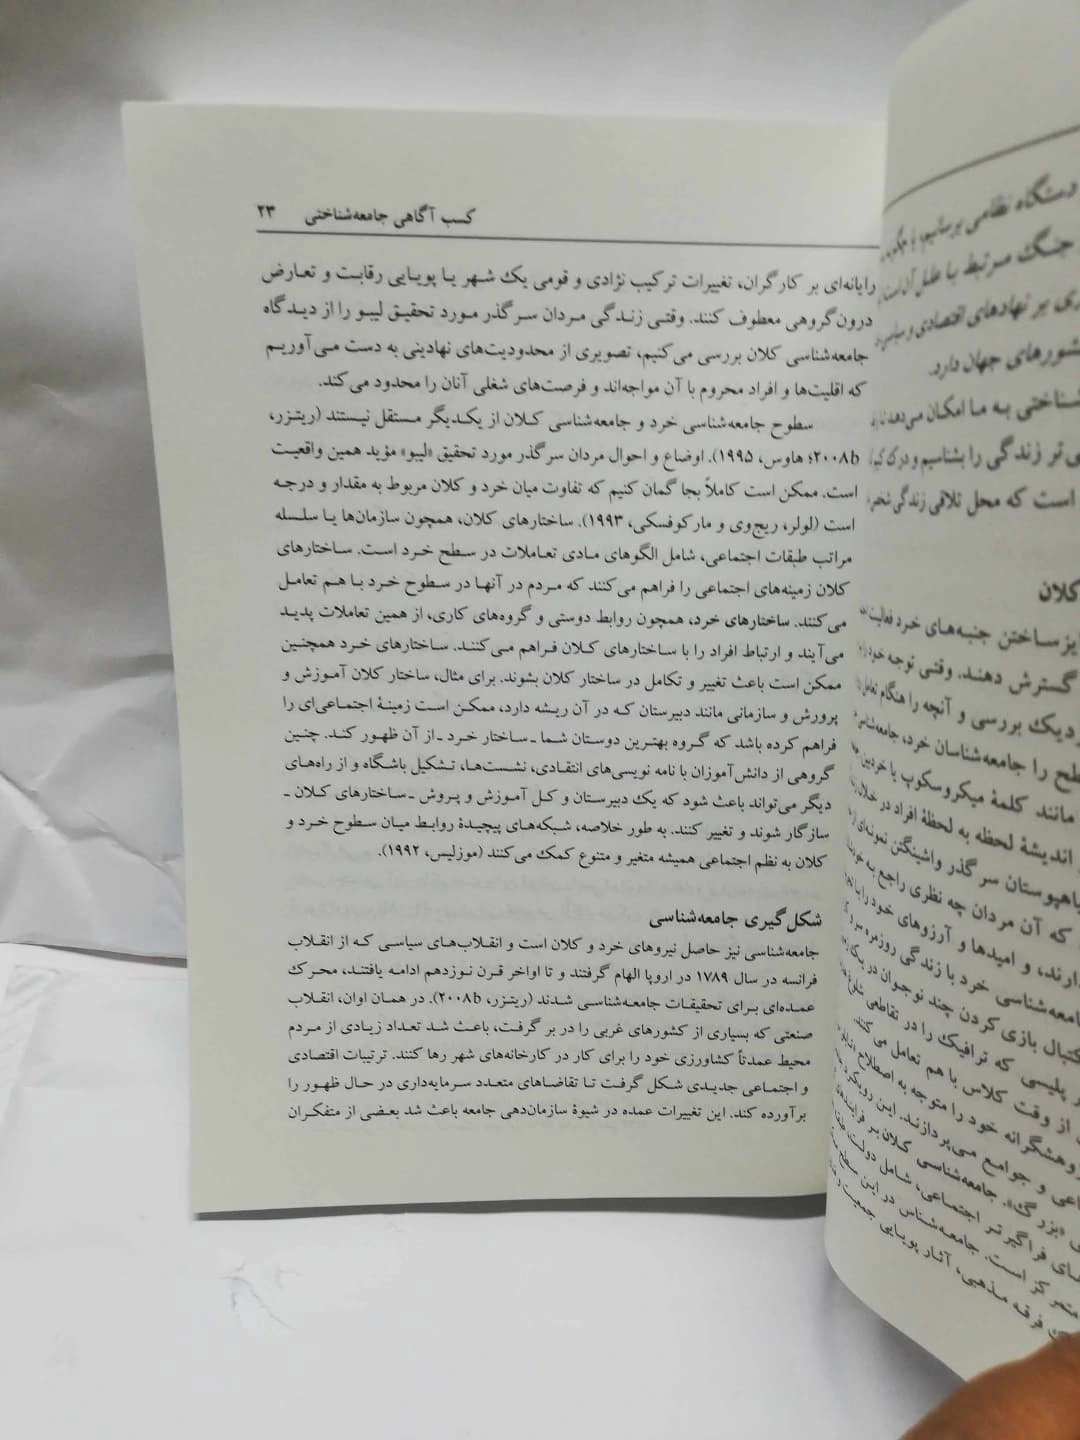 کسب آگاهی جامعه‌شناختی ۲۳
رایانه‌ای بر کارگران، تغییرات ترکیب نژادی و قومی یک شهر یا پویایی رقابت و تعارض
درون‌گروهی معطوف کنند. وقتی زندگی مردان سر گذر مورد تحقیق لیبو را از دیدگاه
جامعه‌شناسی کلان بررسی می‌کنیم، تصویری از محدودیت‌های نهادینی به دست می‌آوریم
که اقلیت‌ها و افراد محروم با آن مواجه‌اند و فرصت‌های شغلی آنان را محدود می‌کند.
سطوح جامعه‌شناسی خرد و جامعه‌شناسی کلان از یکدیگر مستقل نیستند (ریتزر،
۲۰۰۸b؛ هاوس، ۱۹۹۵). اوضاع و احوال مردان سر گذر مورد تحقیق «لیبو» مؤید همین واقعیت
است. ممکن است کاملاً بجا گمان کنیم که تفاوت میان خرد و کلان مربوط به مقدار و درجه
است (لولر، ریج‌وی و مارکوفسکی، ۱۹۹۳). ساختارهای کلان، همچون سازمان‌ها یا سلسله
مراتب طبقات اجتماعی، شامل الگوهای مادی تعاملات در سطح خرد است. ساختارهای
کلان زمینه‌های اجتماعی را فراهم می‌کنند که مردم در آنها در سطوح خرد با هم تعامل
می‌کنند. ساختارهای خرد، همچون روابط دوستی و گروه‌های کاری، از همین تعاملات پدید
می‌آیند و ارتباط افراد را با ساختارهای کلان فراهم می‌کنند. ساختارهای خرد همچنین
ممکن است باعث تغییر و تکامل در ساختار کلان بشوند. برای مثال، ساختار کلان آموزش و
پرورش و سازمانی مانند دبیرستان که در آن ریشه دارد، ممکن است زمینهٔ اجتماعی‌ای را
فراهم کرده باشد که گروه بهترین دوستان شما ـ ساختار خرد ـ از آن ظهور کند. چنین
گروهی از دانش‌آموزان با نامه نویسی‌های انتقادی، نشست‌ها، تشکیل باشگاه و از راه‌های
دیگر می‌تواند باعث شود که یک دبیرستان و کل آموزش و پروش ـ ساختارهای کلان ـ
سازگار شوند و تغییر کنند. به طور خلاصه، شبکه‌های پیچیدهٔ روابط میان سطوح خرد و
کلان به نظم اجتماعی همیشه متغیر و متنوع کمک می‌کنند (موزلیس، ۱۹۹۲).
شکل‌گیری جامعه‌شناسی
جامعه‌شناسی نیز حاصل نیروهای خرد و کلان است و انقلاب‌های سیاسی که از انقلاب
فرانسه در سال ۱۷۸۹ در اروپا الهام گرفتند و تا اواخر قرن نوزدهم ادامه یافتند، محرک
عمده‌ای برای تحقیقات جامعه‌شناسی شدند (ریتزر، ۲۰۰۸b). در همان اوان، انقلاب
صنعتی که بسیاری از کشورهای غربی را در بر گرفت، باعث شد تعداد زیادی از مردم
محیط عمدتاً کشاورزی خود را برای کار در کارخانه‌های شهر رها کنند. ترتیبات اقتصادی
و اجتماعی جدیدی شکل گرفت تا تقاضاهای متعدد سرمایه‌داری در حال ظهور را
برآورده کند. این تغییرات عمده در شیوهٔ سازمان‌دهی جامعه باعث شد بعضی از متفکران
دستگاه نظامی برسانیم، یا
جنگ مرتبط با علل آن است
ری بر نهادهای اقتصادی و سیاسی
شورهای جهان دارد.
شناختی به ما امکان می‌دهد تا
ی‌تر زندگی را بشناسیم و درک کنیم
است که محل تلاقی زندگی
کلان
یز ساختن جنبه‌های خرد فعالیت
گسترش دهند. وقتی توجه خود را
زدیک بررسی و آنچه را هنگام تعامل
طح را جامعه‌شناسان خرد،
مانند کلمهٔ میکروسکوپ یا خردبین
اندیشهٔ لحظه به لحظهٔ افراد در خلال
یاهپوستان سر گذر واشینگتن نمونه‌ای از
که آن مردان چه نظری راجع به
دارند، و امیدها و آرزوهای خود را با
جامعه‌شناسی خرد با زندگی روزمره سر و
کتبال بازی کردن چند نوجوان در یک
ر پلیسی که ترافیک را در تقاطعی شلوغ
از وقت کلاس با هم تعامل می‌کنند.
وهشگرانه خود را متوجه به اصطلاح
اعی و جوامع می‌پردازند. این رویکرد
ی «بزرگ». جامعه‌شناسی کلان بر فرایندهای
های فراگیرتر اجتماعی، شامل دولت،
متمرکز است. جامعه‌شناس در این سطح
ک فرقه مذهبی، آثار پویایی جمعیت و